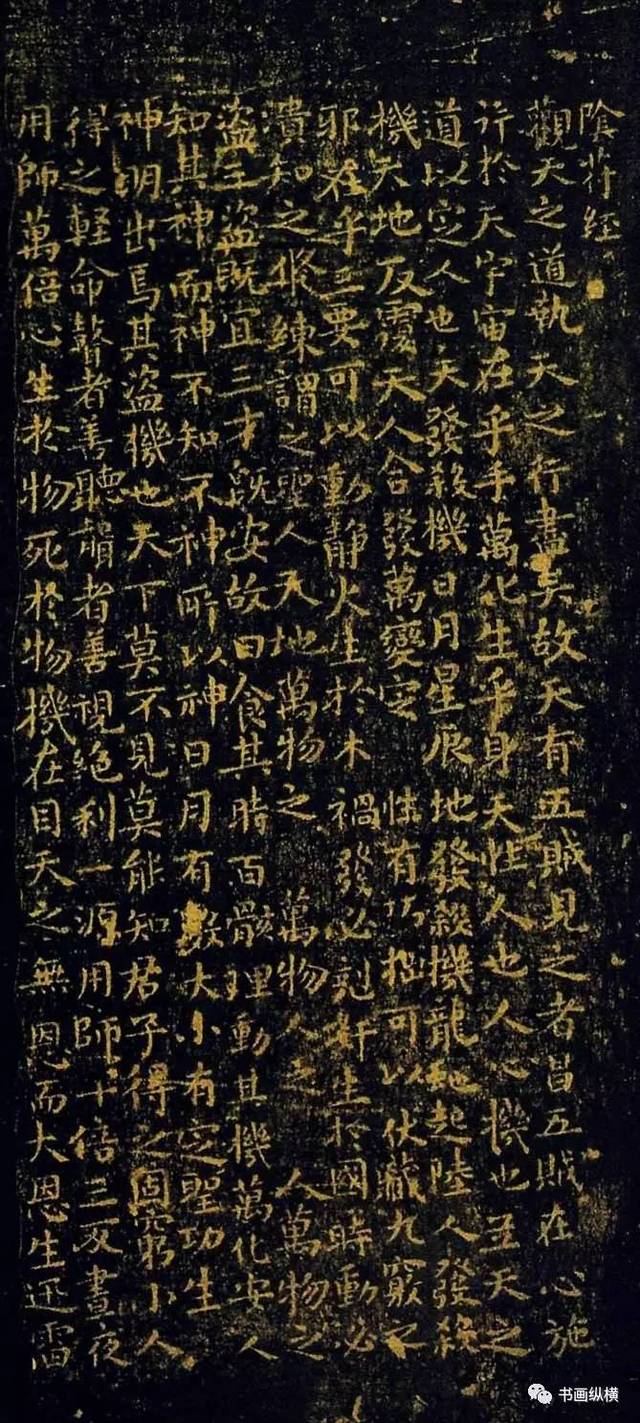 陰符經
觀天之道執天之行盡矣故天有五賊見之者昌五賊在心施
行於天宇宙在乎手萬化生乎身天性人也人心機也立天之
道以定人也天發殺機日月星辰地發殺機龍虵起陸人發殺
機天地反覆天人合發萬變定 性有巧拙可以伏藏九竅之
邪在乎三要可以動靜火生於木禍發必剋奸生於國時動必
潰知之修練謂之聖人天地萬物之 萬物人之 人萬物之
盜三盜既宜三才旣安故曰食其時百骸理動其機萬化安人
知其神而神不知不神所以神日月有數大小有定聖功生
神明出焉其盜機也天下莫不見莫能知君子得之固窮小人
得之輕命瞽者善聽聾者善視絕利一源用師十倍三反晝夜
用師萬倍心生於物死於物機在目天之無恩而大恩生迅雷
书画纵横